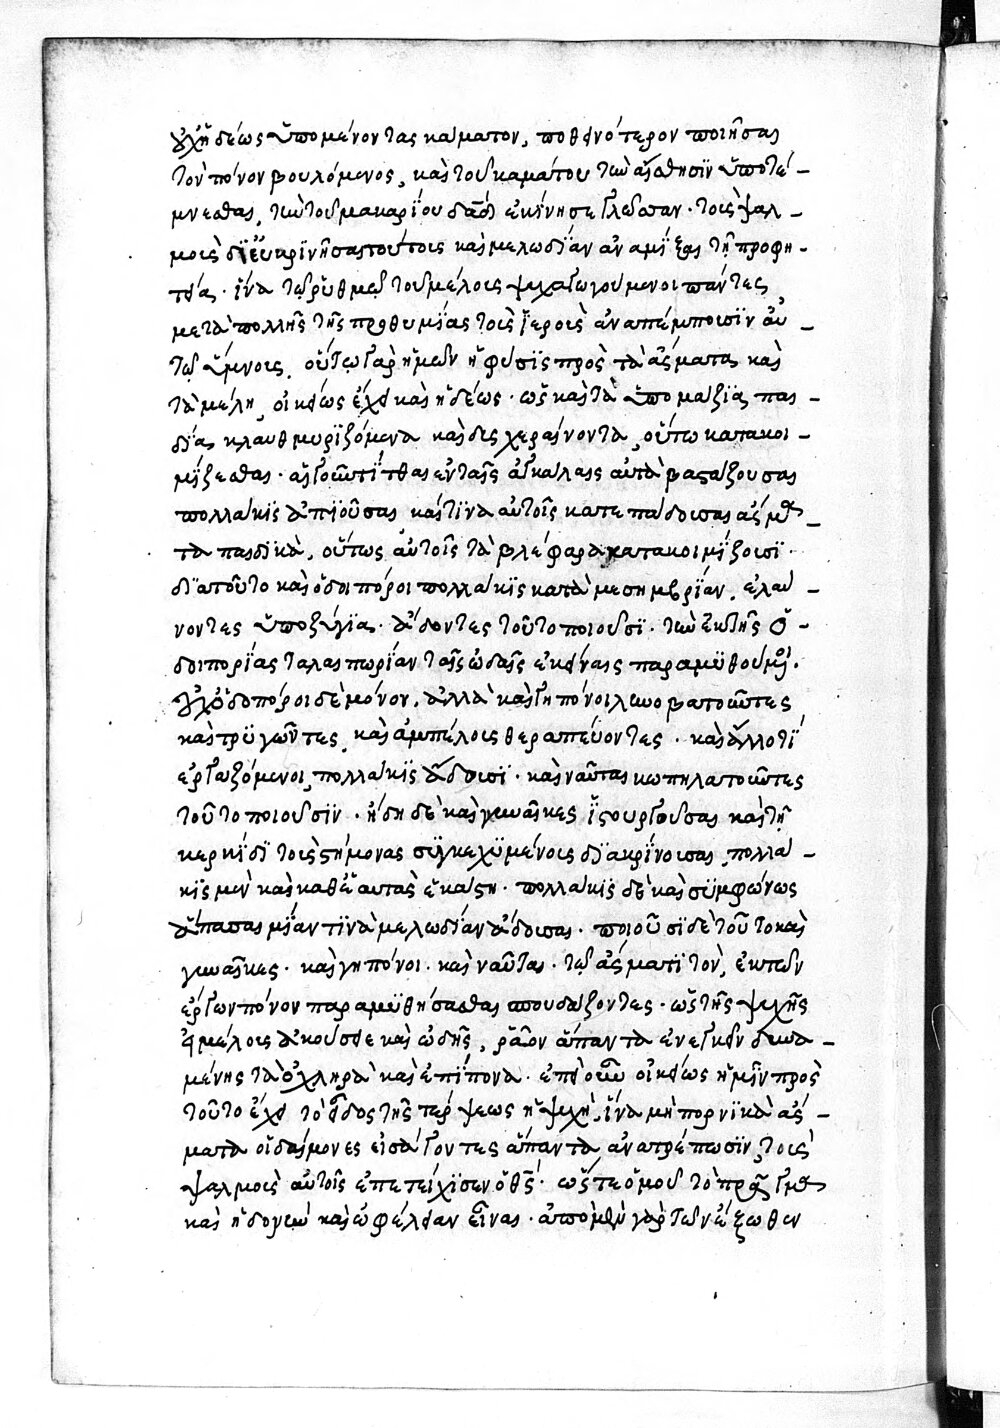 οὐχ ἡδέως ὑπομένοντας κάματον, ποθεινότερον ποιῆσαι
τὸν πόνον βουλόμενος, καὶ τοῦ καμάτου τὴν αἴσθησϊν ὑποτέ-
μνεσθαι, τὴν τοῦ μακαρΐου δᾱδ ἐκίνησε γλῶτταν· τοῖς ψαλ-
μοῖς διευκρϊνήσας τούτοις καὶ μελωδΐαν ἀναμΐξας τῇ προφη-
τείᾳ· ἵνα τῷ ῥυθμῷ τοῦ μέλους ψυχαγωγούμενοι πάντες
μετὰ πολλῆς τῆς προθυμΐας τοὺς ἱεροὺς ἀναπέμπουσϊν αὐ-
τῷ ὕμνους, οὕτω γὰρ ἡμῶν ἡ φύσϊς πρὸς τὰ ἄσματα καὶ
τὰ μέλη οἰκείως ἔχει καὶ ἡδέως· ὡς καὶ τὰ ὑπομάζϊα παι-
δΐα, κλαυθμυρϊζόμενα καὶ δυσχεραίνοντα, οὕτω κατακοι-
μΐζεσθαι· αἵ γοῦν τΐτθαι ἐν ταῖς ἀγκάλαις αὐτὰ βαστάζουσαι
πολλάκϊς ἀπϊοῦσαι καί τϊνα αὐτοῖς κατεπάδουσαι ἄσμα-
τα παιδϊκὰ, οὕτως αὐτοῖς τὰ βλέφαρα κατακοιμΐζουσϊ·
διὰ τοῦτο καὶ ὁδοιπόροι πολλάκϊς κατὰ μεσημβρΐαν, ἐλαύ-
νοντες ὑποζύγϊα· ἄδοντες τοῦτο ποιοῦσϊ· τὴν ἐκ τῆς ὁ-
δοιπορΐας ταλαιπωρΐαν ταῖς ὠδαῖς ἐκείναις παραμϋθούμενοι·
οὐχ ὁδοιπόροι δὲ μόνον, ἀλλὰ καὶ γηπόνοι ληνοβατοῦντες
καὶ τρϋγῶντες, καὶ ἀμπέλους θεραπεύοντες· καὶ ἄλλο τϊ
ἐργαζόμενοι, πολλάκϊς ἄδουσϊ· καὶ ναῦται κωπηλατοῦντες
τοῦτο ποιοῦσϊν· ἤδη δὲ καὶ γυναῖκες ἱστουργοῦσαι καὶ τῇ
κερκΐδϊ τοὺς στήμονας συγκεχϋμένους διακρΐνουσαι, πολλά-
κϊς μὲν καὶ καθ' ἑαυτὰς ἑκάστη· πολλάκϊς δὲ καὶ συμφώνως
ἅπασαι μΐαν τϊνὰ μελωδΐαν ἄδουσαι· ποιοῦσϊ δὲ τοῦτο καὶ
γυναῖκες· καὶ γηπόνοι· καὶ ναῦται· τῷ ἄσματϊ τὸν, ἐκ τῶν
ἔργων πόνον παραμϋθήσασθαι σπουδάζοντες· ὡς τῆς ψυχῆς
εἰ μέλους ἀκούσειε καὶ ὠδῆς, ῥᾶον ἅπαντα ἐνεγκεῖν δυνα-
μένης τὰ ὀχληρὰ καὶ ἐπΐπονα· ἐπεὶ οὖν οἰκείως ἡμῖν πρὸς
τοῦτο ἔχει τὸ εἶδος τῆς τέρψεως ἡ ψυχὴ, ἵνα μὴ πορνϊκὰ ἄσ-
ματα οἱ δαίμονες εἰσάγοντες ἅπαντα ἀνατρέπωσϊν, τοὺς
ψαλμοὺς αὐτοῖς ἐπετείχϊσεν ὁ θς̄· ὥστε ὁμοῦ τὸ πρᾶγμα
καὶ ἡδονὴν καὶ ὠφέλειαν εἶναι· ἀπὸ μὲν γὰρ τῶν ἔξωθεν